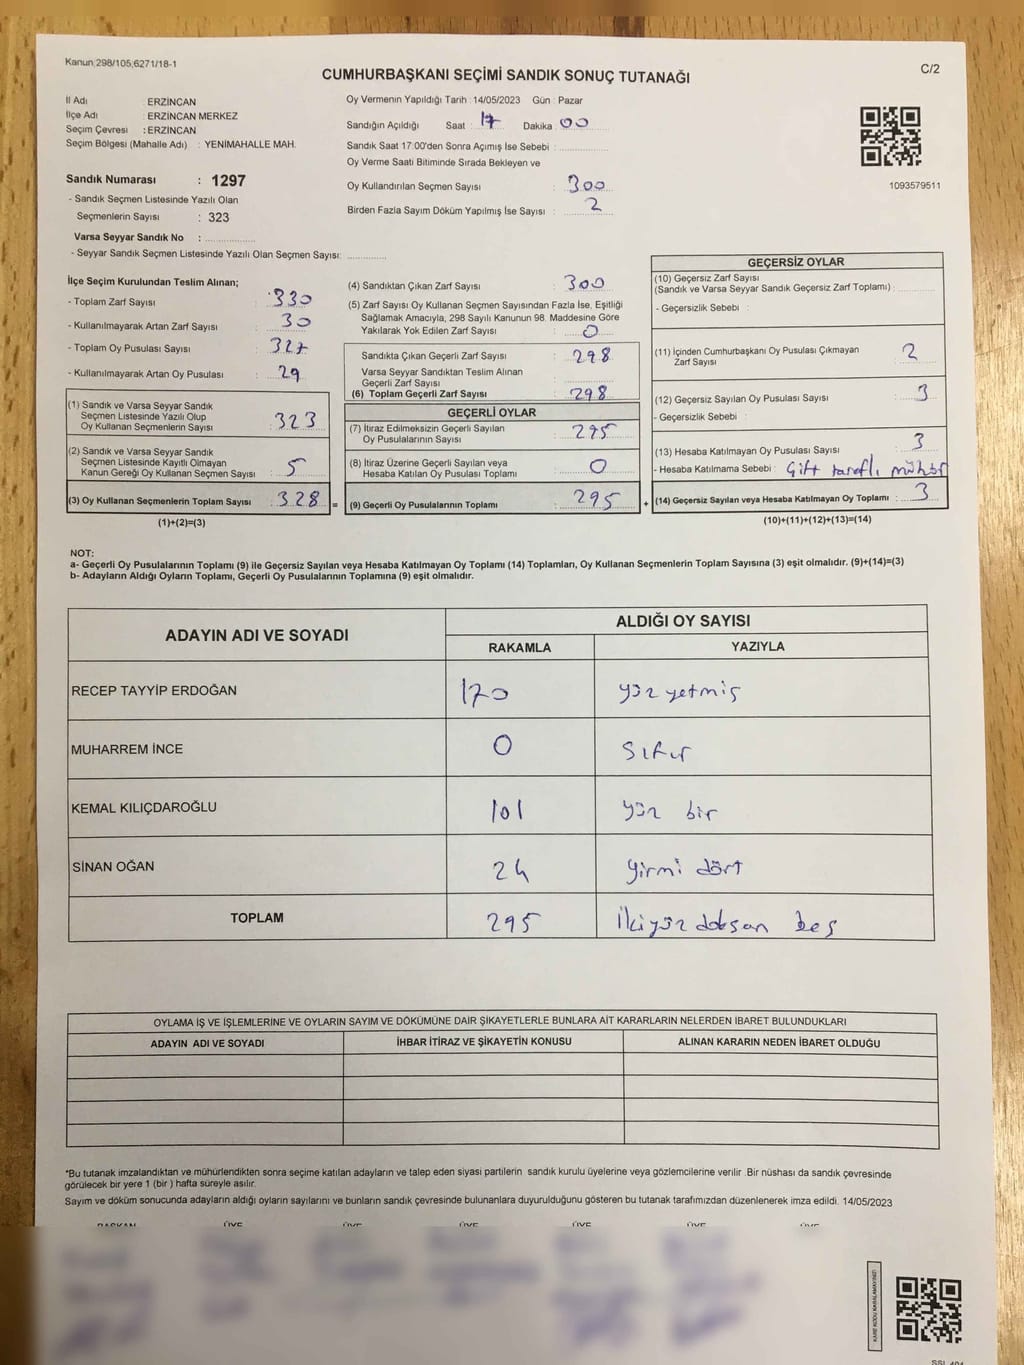 Kanun;298/105;6271/18-1
CUMHURBAŞKANI SEÇİMİ SANDIK SONUÇ TUTANAĞI
C/2
İl Adı : ERZİNCAN
İlçe Adı : ERZİNCAN MERKEZ
Seçim Çevresi : ERZİNCAN
Seçim Bölgesi (Mahalle Adı) : YENİMAHALLE MAH.
Sandık Numarası : 1297
- Sandık Seçmen Listesinde Yazılı Olan
Seçmenlerin Sayısı : 323
Varsa Seyyar Sandık No :
- Seyyar Sandık Seçmen Listesinde Yazılı Olan Seçmen Sayısı:
Oy Vermenin Yapıldığı Tarih : 14/05/2023 Gün : Pazar
Sandığın Açıldığı Saat : 17 Dakika : 00
Sandık Saat 17:00'den Sonra Açımış İse Sebebi :
Oy Verme Saati Bitiminde Sırada Bekleyen ve
Oy Kullandırılan Seçmen Sayısı : 300
Birden Fazla Sayım Döküm Yapılmış İse Sayısı : 2
1093579511
İlçe Seçim Kurulundan Teslim Alınan;
- Toplam Zarf Sayısı : 330
- Kullanılmayarak Artan Zarf Sayısı : 30
- Toplam Oy Pusulası Sayısı : 327
- Kullanılmayarak Artan Oy Pusulası : 29
(1) Sandık ve Varsa Seyyar Sandık
Seçmen Listesinde Yazılı Olup
Oy Kullanan Seçmenlerin Sayısı : 323
(2) Sandık ve Varsa Seyyar Sandık
Seçmen Listesinde Kayıtlı Olmayan
Kanun Gereği Oy Kullanan Seçmen Sayısı : 5
(3) Oy Kullanan Seçmenlerin Toplam Sayısı : 328
(1)+(2)=(3)
(4) Sandıktan Çıkan Zarf Sayısı : 300
(5) Zarf Sayısı Oy Kullanan Seçmen Sayısından Fazla İse, Eşitliği
Sağlamak Amacıyla, 298 Sayılı Kanunun 98. Maddesine Göre
Yakılarak Yok Edilen Zarf Sayısı : 0
Sandıkta Çıkan Geçerli Zarf Sayısı : 298
Varsa Seyyar Sandıktan Teslim Alınan
Geçerli Zarf Sayısı :
(6) Toplam Geçerli Zarf Sayısı : 298
GEÇERLİ OYLAR
(7) İtiraz Edilmeksizin Geçerli Sayılan
Oy Pusulalarının Sayısı : 295
(8) İtiraz Üzerine Geçerli Sayılan veya
Hesaba Katılan Oy Pusulası Toplamı : 0
=
(9) Geçerli Oy Pusulalarının Toplamı : 295
+
GEÇERSİZ OYLAR
(10) Geçersiz Zarf Sayısı
(Sandık ve Varsa Seyyar Sandık Geçersiz Zarf Toplamı) :
- Geçersizlik Sebebi :
(11) İçinden Cumhurbaşkanı Oy Pusulası Çıkmayan
Zarf Sayısı : 2
(12) Geçersiz Sayılan Oy Pusulası Sayısı : 3
- Geçersizlik Sebebi :
(13) Hesaba Katılmayan Oy Pusulası Sayısı : 3
- Hesaba Katılmama Sebebi : Çift taraflı mühür
(14) Geçersiz Sayılan veya Hesaba Katılmayan Oy Toplamı : 3
(10)+(11)+(12)+(13)=(14)
NOT:
a- Geçerli Oy Pusulalarının Toplamı (9) ile Geçersiz Sayılan veya Hesaba Katılmayan Oy Toplamı (14) Toplamları, Oy Kullanan Seçmenlerin Toplam Sayısına (3) eşit olmalıdır. (9)+(14)=(3)
b- Adayların Aldığı Oyların Toplamı, Geçerli Oy Pusulalarının Toplamına (9) eşit olmalıdır.
ADAYIN ADI VE SOYADI
ALDIĞI OY SAYISI
RAKAMLA YAZIYLA
RECEP TAYYİP ERDOĞAN 170 yüz yetmiş
MUHARREM İNCE 0 Sıfır
KEMAL KILIÇDAROĞLU 101 yüz bir
SİNAN OĞAN 24 yirmi dört
TOPLAM 295 İkiyüz doksan beş
OYLAMA İŞ VE İŞLEMLERİNE VE OYLARIN SAYIM VE DÖKÜMÜNE DAİR ŞİKAYETLERLE BUNLARA AİT KARARLARIN NELERDEN İBARET BULUNDUKLARI
ADAYIN ADI VE SOYADI İHBAR İTİRAZ VE ŞİKAYETİN KONUSU ALINAN KARARIN NEDEN İBARET OLDUĞU
*Bu tutanak imzalandıktan ve mühürlendikten sonra seçime katılan adayların ve talep eden siyasi partilerin sandık kurulu üyelerine veya gözlemcilerine verilir. Bir nüshası da sandık çevresinde
görülecek bir yere 1 (bir ) hafta süreyle asılır.
Sayım ve döküm sonucunda adayların aldığı oyların sayılarını ve bunların sandık çevresinde bulunanlara duyurulduğunu gösteren bu tutanak tarafımızdan düzenlenerek imza edildi. 14/05/2023
BAŞKAN ÜYE ÜYE ÜYE ÜYE ÜYE ÜYE